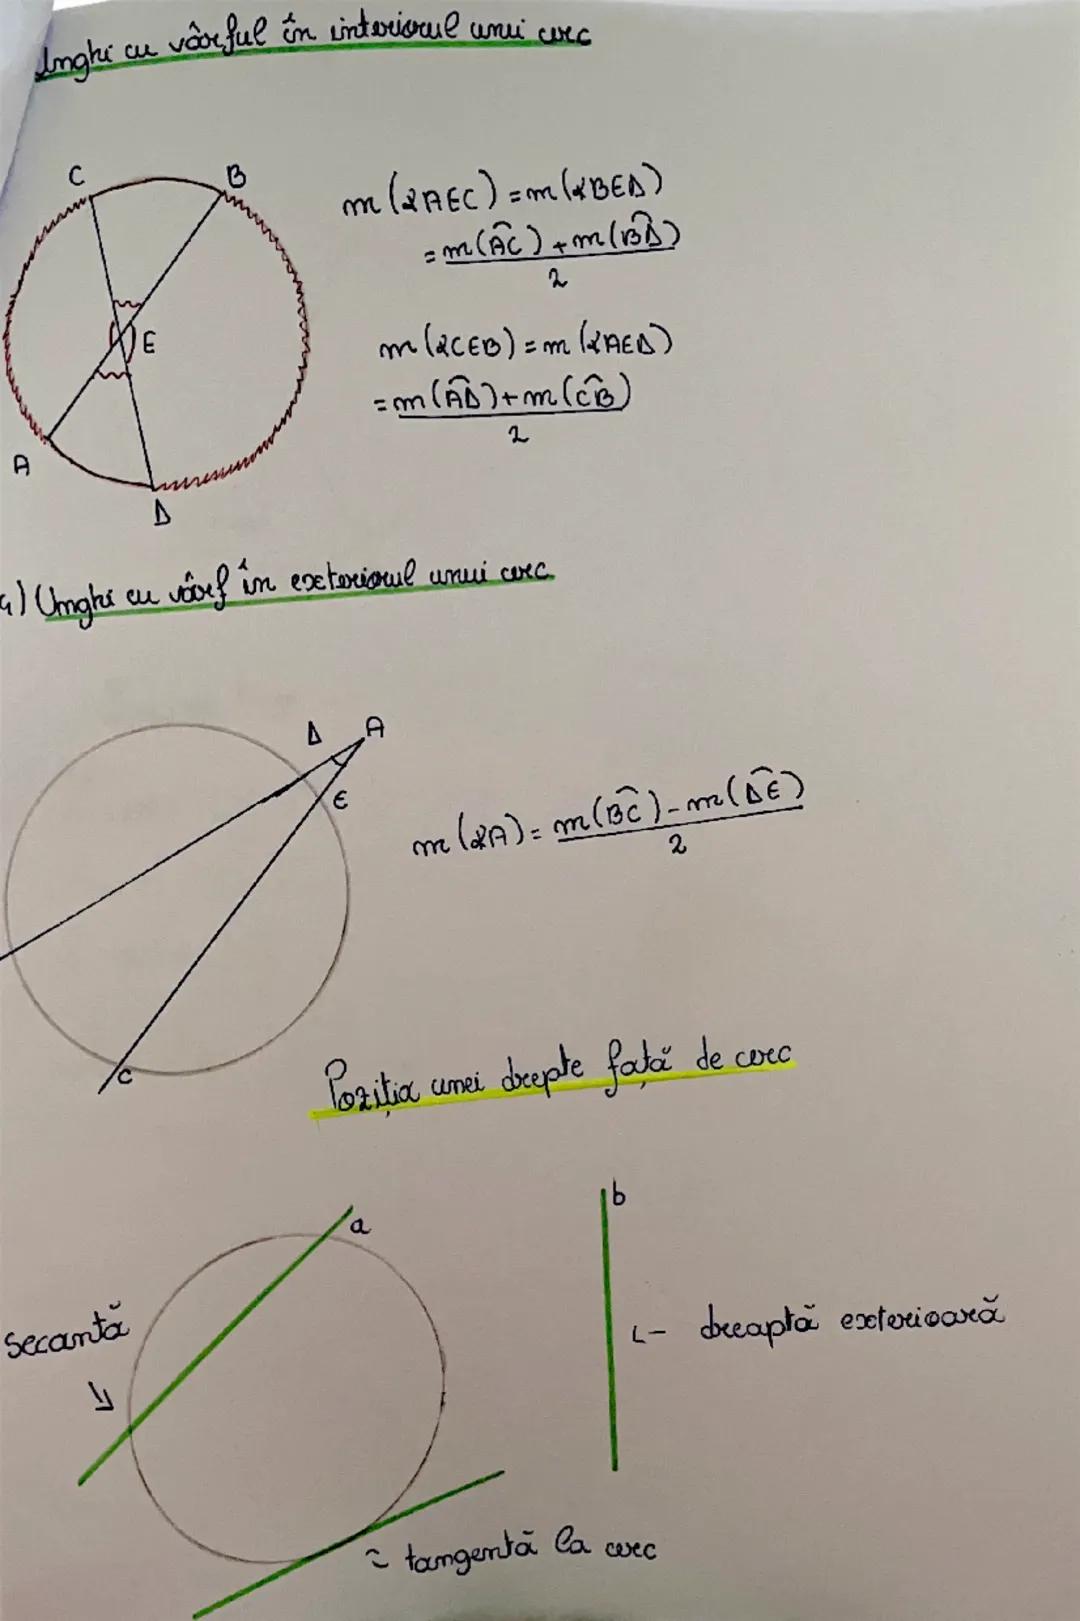 Unghi cu vârful în interiorul unui cerc
C
B
E
A
D
m(∢AEC) = m(∢BED)
= m(AC) + m(BD)
2
m(∢CEB) = m(∢AED)
= m(AD) + m(CB)
2
4) Unghi cu vârf în exteriorul unui cerc
D
A
E
C
m(∢A) = m(BC) - m(DE)
2
Poziția unei drepte față de cerc
a
b
secantă
dreaptă exterioară
tangentă la cerc